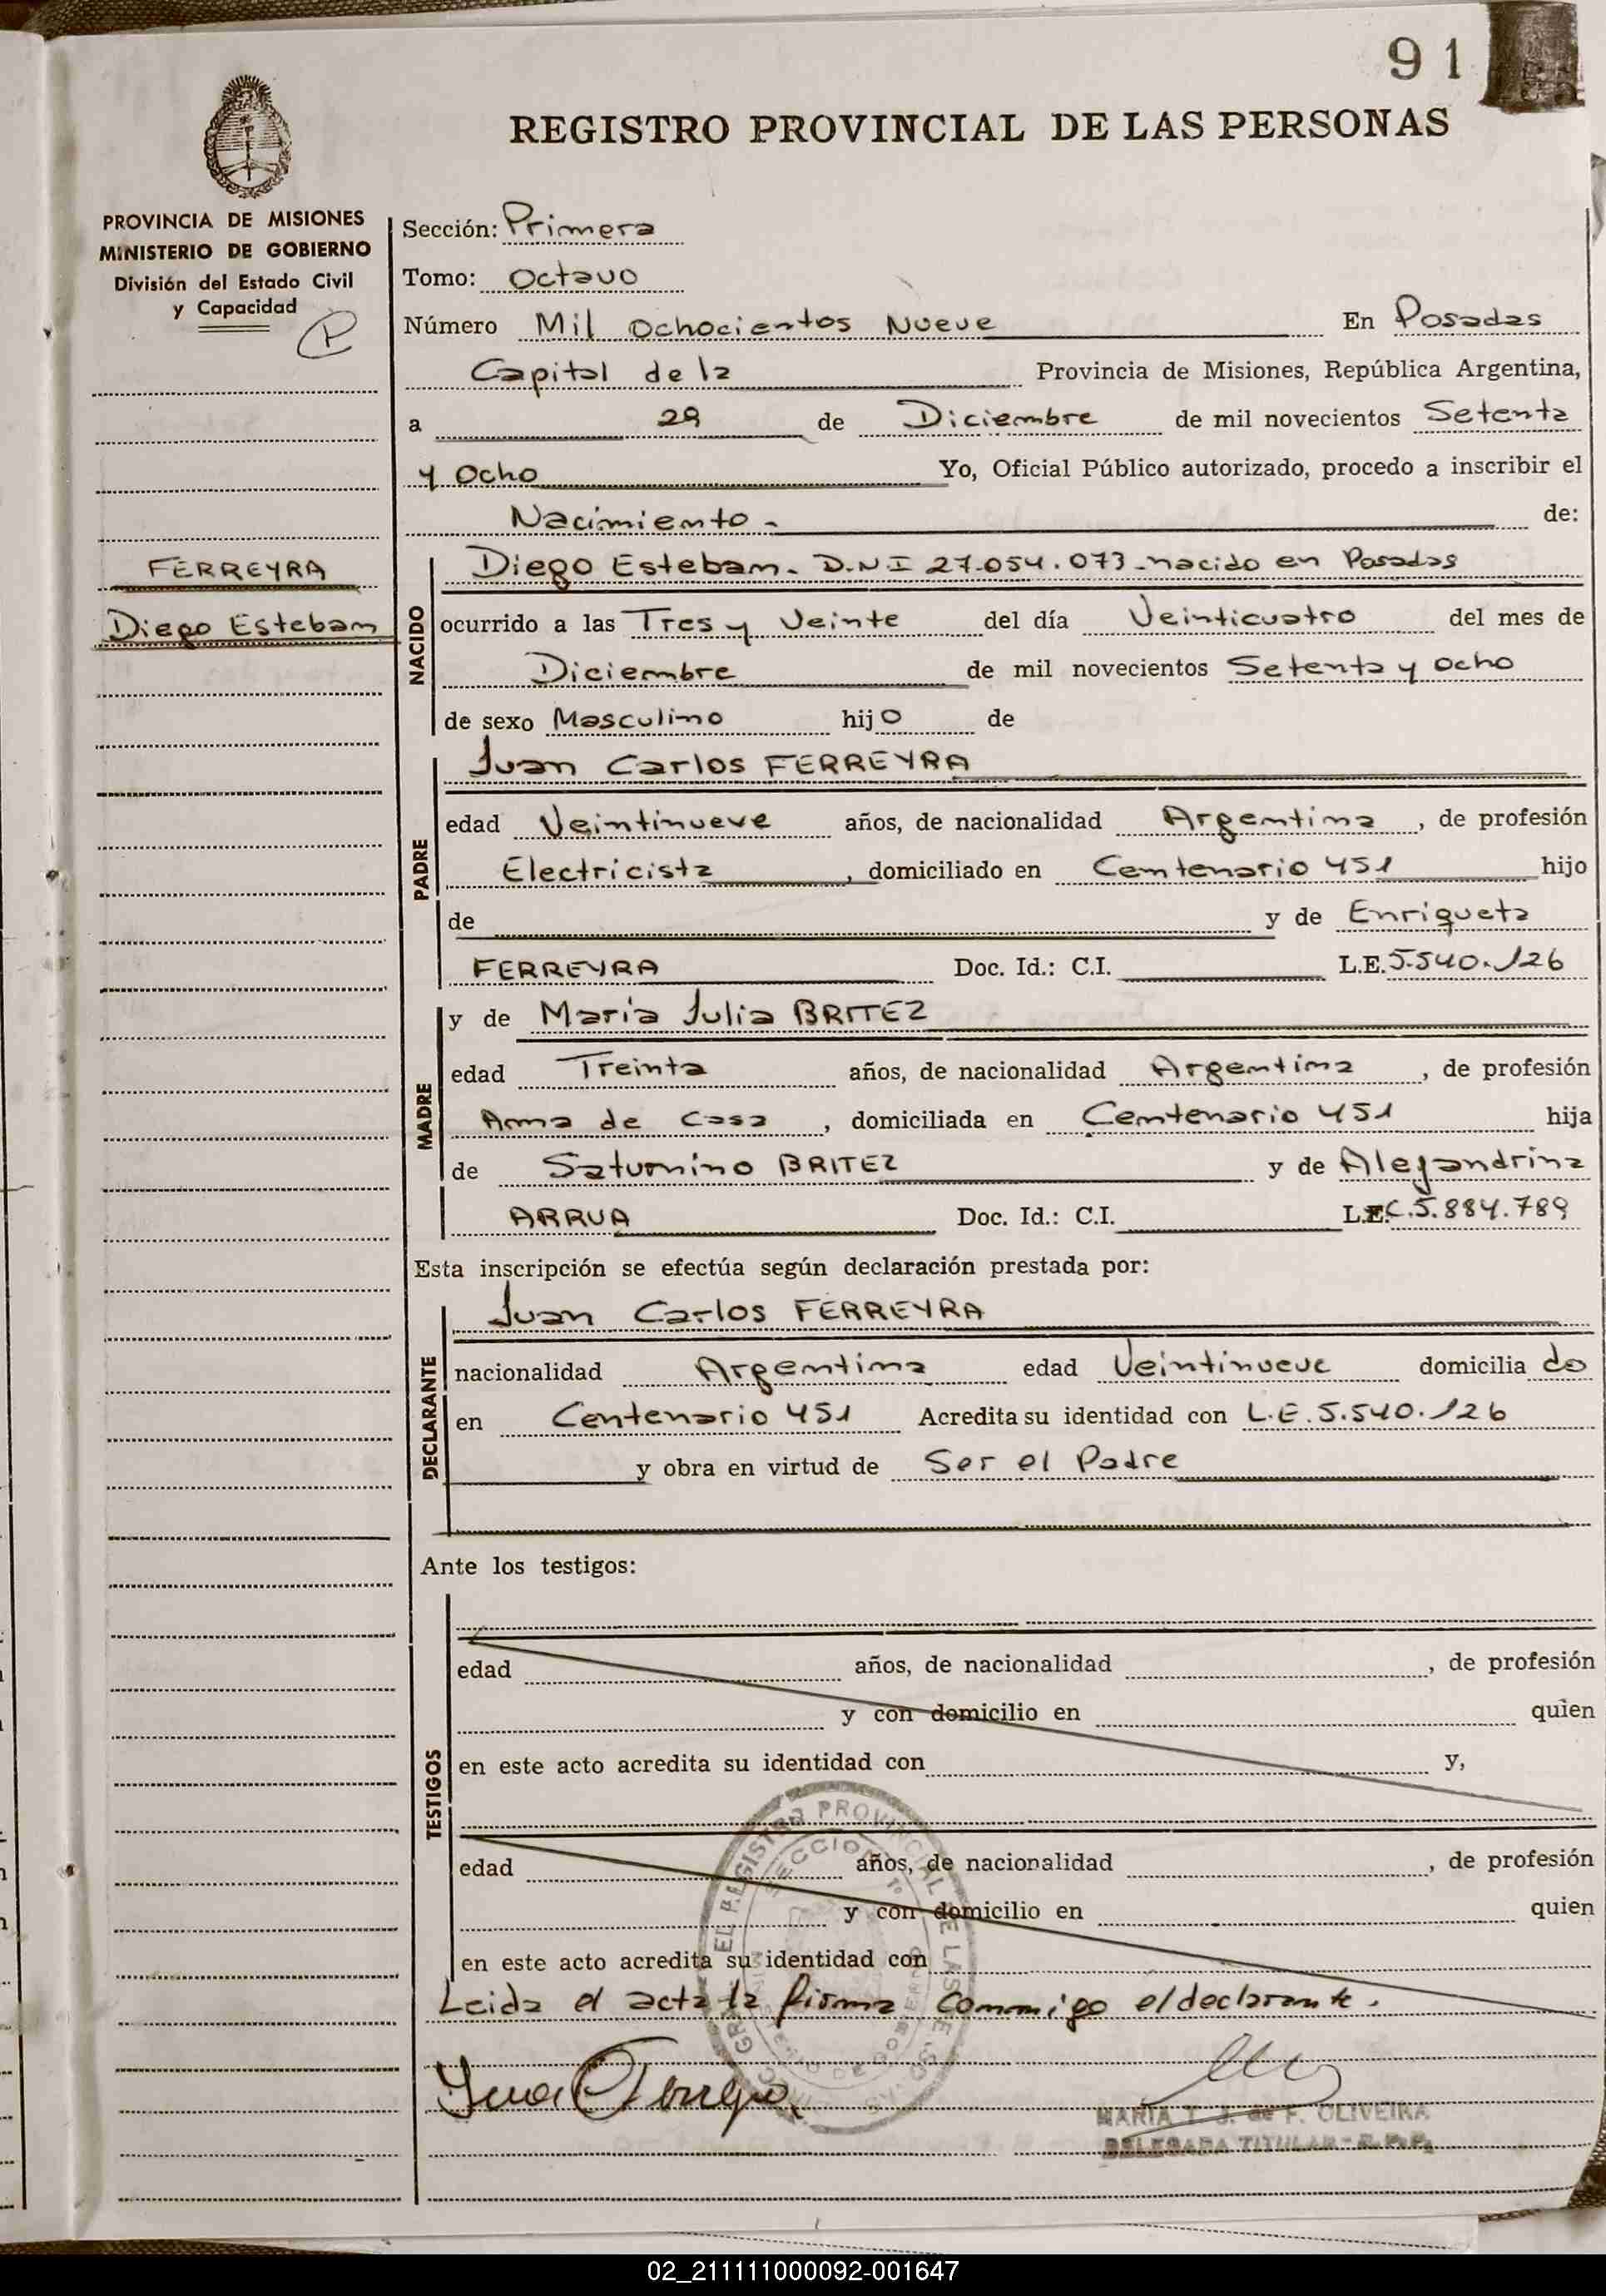 91
REGISTRO PROVINCIAL DE LAS PERSONAS
PROVINCIA DE MISIONES
MINISTERIO DE GOBIERNO
División del Estado Civil
y Capacidad
P
FERREYRA
Diego Estebam
Sección: Primera
Tomo: Octavo
Número Mil Ochocientos Nueve En Posadas
Capital de la Provincia de Misiones, República Argentina,
a 29 de Diciembre de mil novecientos Setenta
y Ocho Yo, Oficial Público autorizado, procedo a inscribir el
Nacimiento - de:
NACIDO
Diego Estebam. D.N.I 27.054.073 - nacido en Posadas
ocurrido a las Tres y Veinte del día Veinticuatro del mes de
Diciembre de mil novecientos Setenta y Ocho
de sexo Masculino hijo de
PADRE
Juan Carlos FERREYRA
edad Veintinueve años, de nacionalidad Argentina, de profesión
Electricista, domiciliado en Centenario 451 hijo
de y de Enriqueta
FERREYRA Doc. Id.: C.I. L.E. 5.540.126
MADRE
y de María Julia BRITEZ
edad Treinta años, de nacionalidad Argentina, de profesión
Ama de Casa, domiciliada en Centenario 451 hija
de Saturnino BRITEZ y de Alejandrina
ARRUA Doc. Id.: C.I. L.C. 5.884.789
Esta inscripción se efectúa según declaración prestada por:
DECLARANTE
Juan Carlos FERREYRA
nacionalidad Argentina edad Veintinueve domiciliado
en Centenario 451 Acredita su identidad con L.E. 5.540.126
y obra en virtud de Ser el Padre
Ante los testigos:
TESTIGOS
edad años, de nacionalidad , de profesión
y con domicilio en quien
en este acto acredita su identidad con y,
edad años, de nacionalidad , de profesión
y con domicilio en quien
en este acto acredita su identidad con
Leida el acta la firma conmigo el declarante.
MARIA T. J. de F. OLIVEIRA
DELEGADA TITULAR - R.P.P.
02_211111000092-001647